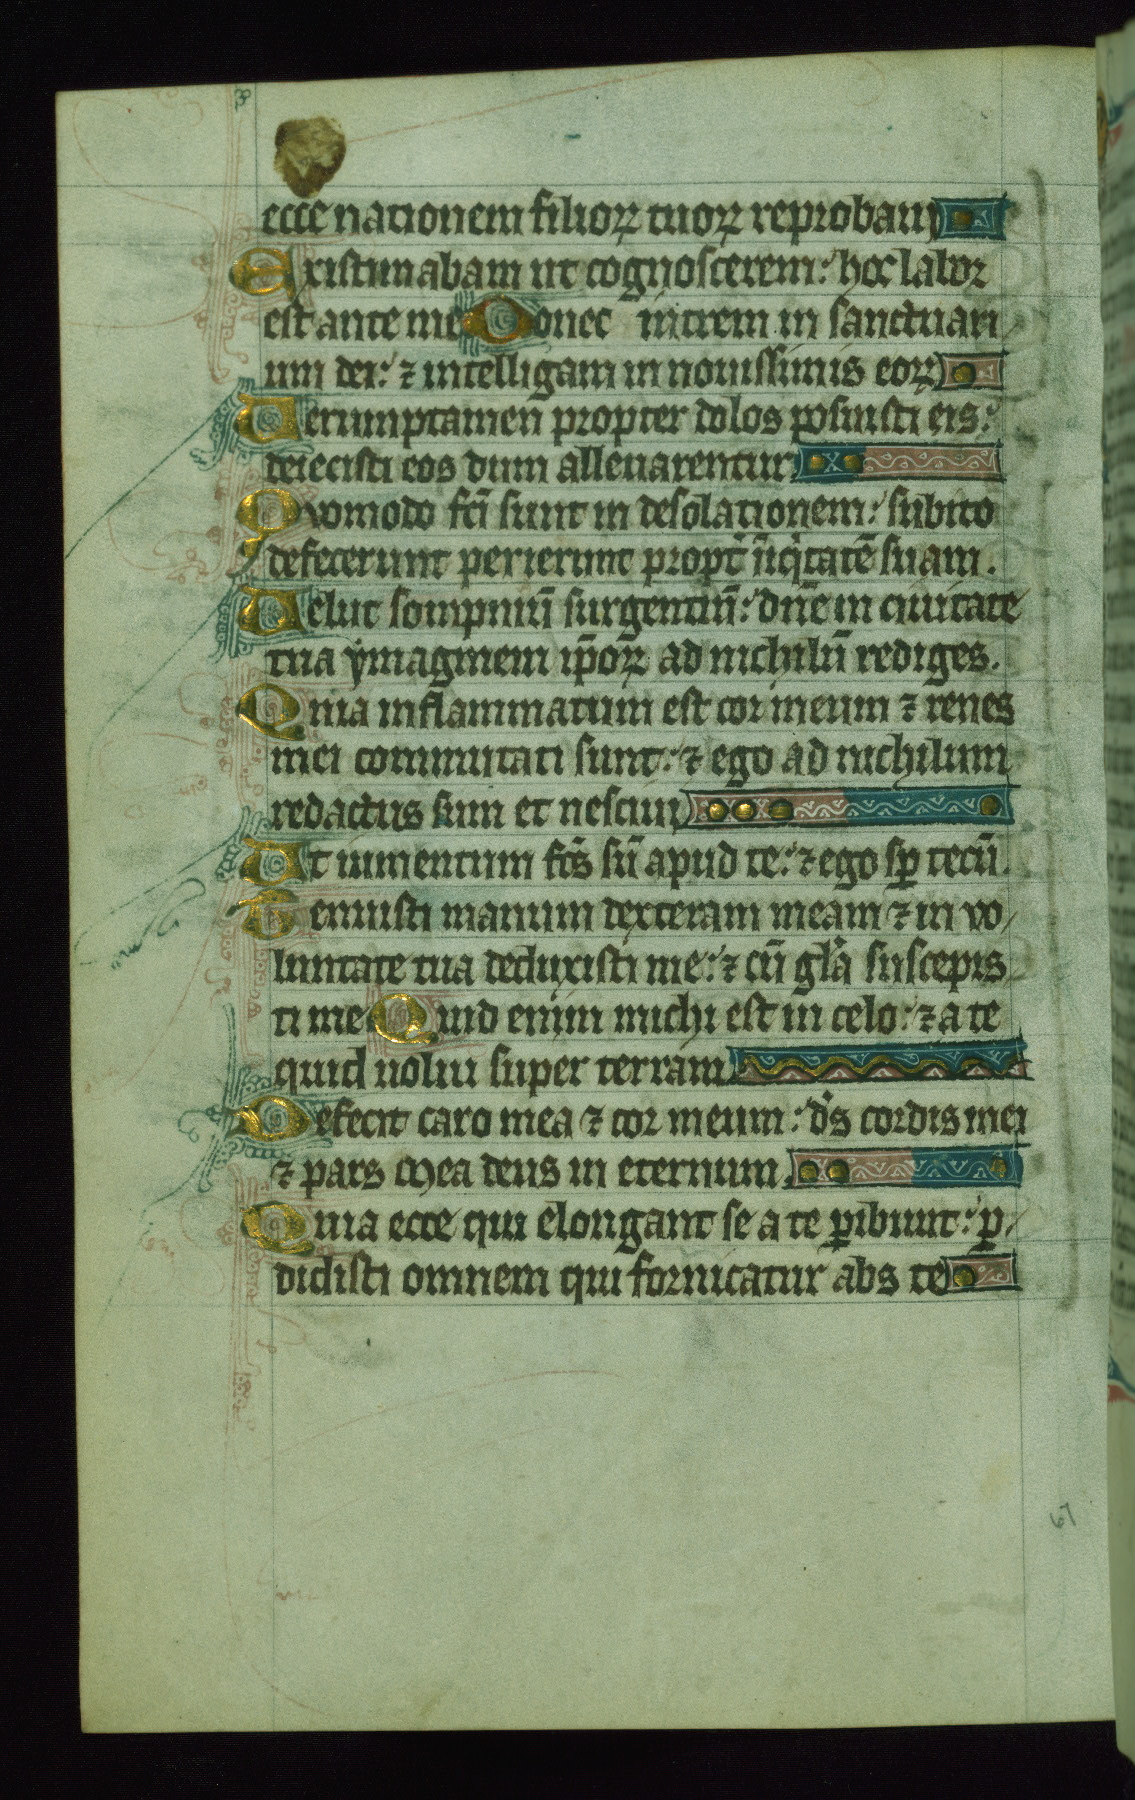 ecce nationem filioꝝ tuoꝝ reprobaui
Existimabam ut cognoscerem: hoc labor
est ante me Donec intrem in sanctuari
um dei: ⁊ intelligam in nouissimis eoꝝ
Uerumptamen propter dolos posuisti eis:
deiecisti eos dum alleuarentur
Quomodo fc̄i sunt in desolationem: subito
defecerunt perierunt propt̉ iiq̇tatē suam.
Uelut sompniū surgentiū: dn̄e in ciuitate
tua ymaginem ip̄oꝝ ad nichilū rediges.
Quia inflammatum est cor meum ⁊ renes
mei commutati sunt: ⁊ ego ad nichilum
redactus sum et nesciui
Ut iumentum fc̄s sū apud te: ⁊ ego sꝑ tecū.
Tenuisti manum dexteram meam ⁊ in vo
luntate tua deduxisti me: ⁊ cū gl̄a suscepis
ti me Quid enim michi est in celo: ⁊ a te
quid uolui super terram
Defecit caro mea ⁊ cor meum: ds̄ cordis mei
⁊ pars mea deus in eternum.
Quia ecce qui elongant se a te ꝑibunt: ꝑ
didisti omnem qui fornicatur abs te
67